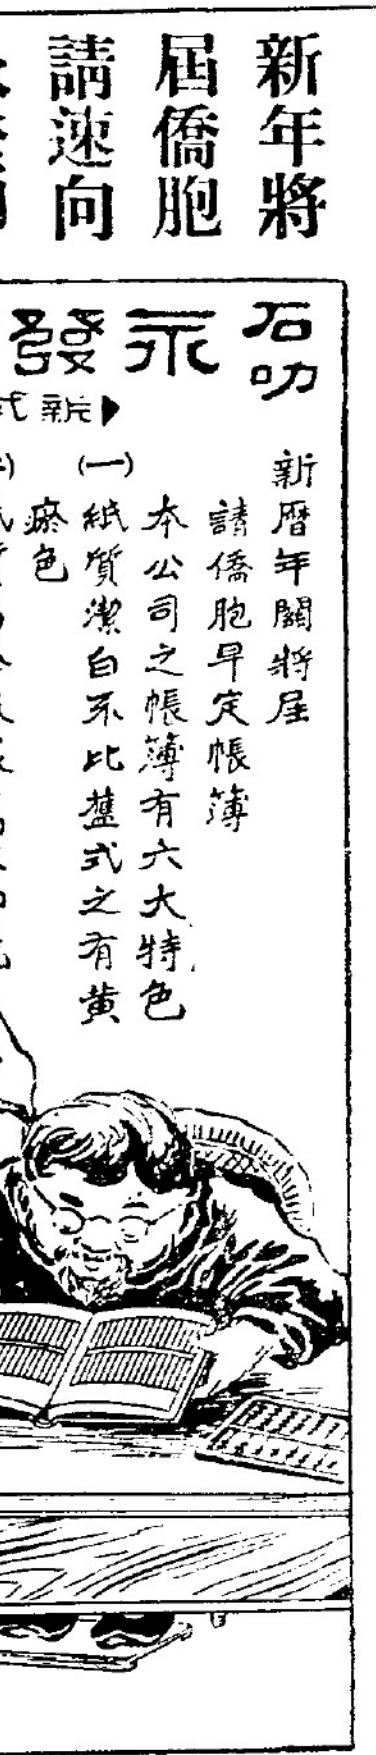 新年將
屆僑胞
請速向
石叻
永發
新式
新曆年關將屆
請僑胞早定帳簿
本公司之帳簿有六大特色
(一)
紙質潔白不比舊式之有黃
瘀色